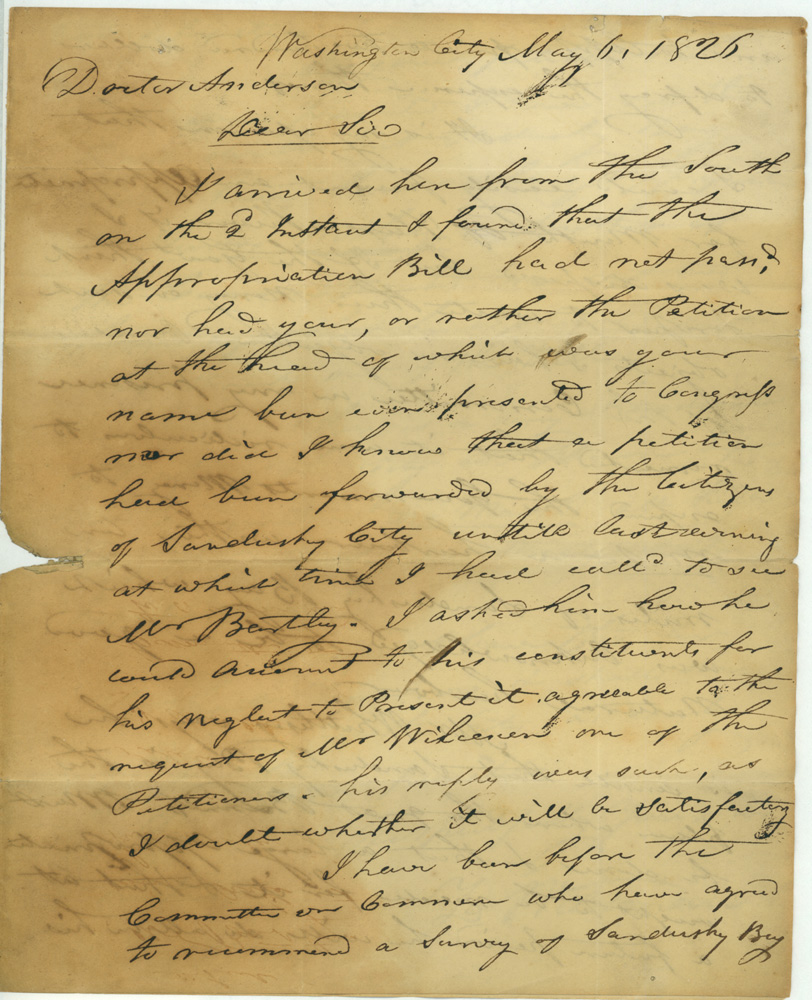 Washington City May 6, 1826
Doctor Anderson
Dear Sir
I arrived here from the South
on the 2d Instant I found that the
Appropriation Bill had not pass'd,
nor had your, or rather the Petition
at the head of which was your
name been even presented to Congress
nor did I know that a petition
had been forwarded by the Citizens
of Sandusky City untill last evening
at which time I had calld to see
Mr Bartley. I asked him how he
could account to his constituents for
his neglect to Present it agreeable to the
request of Mr one of the
Petitioners. his reply was such, as
I doubt whether it will be satisfactory
I have been before the
Committee on Commerce who have agreed
to recommend a Survey of Sandusky Bay